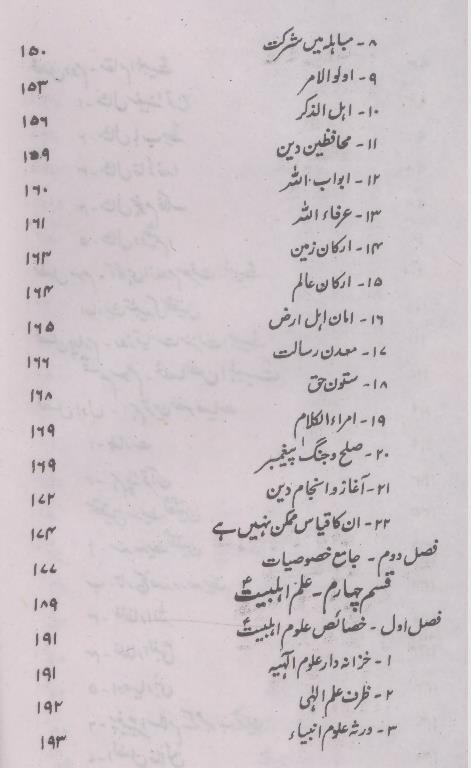 ۸ - مباہلہ میں شرکت ۱۵۰
۹ - اولو الامر ۱۵۳
۱۰ - اہل الذکر ۱۵۶
۱۱ - محافظین دین ۱۵۹
۱۲ - ابواب اللہ ۱۶۰
۱۳ - عرفاء اللہ ۱۶۱
۱۴ - ارکان زمین ۱۶۳
۱۵ - ارکان عالم ۱۶۴
۱۶ - امان اہل ارض ۱۶۵
۱۷ - معدن رسالت ۱۶۶
۱۸ - ستون حق ۱۶۸
۱۹ - امراء الکلام ۱۶۹
۲۰ - صلح و جنگ پیغمبر ۱۶۹
۲۱ - آغاز و انجام دین ۱۷۲
۲۲ - ان کا قیاس ممکن نہیں ہے ۱۷۴
فصل دوم - جامع خصوصیات ۱۷۷
قسم چہارم - علم اہلبیتؑ ۱۸۹
فصل اول - خصائص علوم اہلبیتؑ ۱۹۱
۱ - خزانہ دار علوم الٰہیہ ۱۹۱
۲ - ظرف علم الٰہی ۱۹۲
۳ - ورثہ علوم انبیاء ۱۹۳